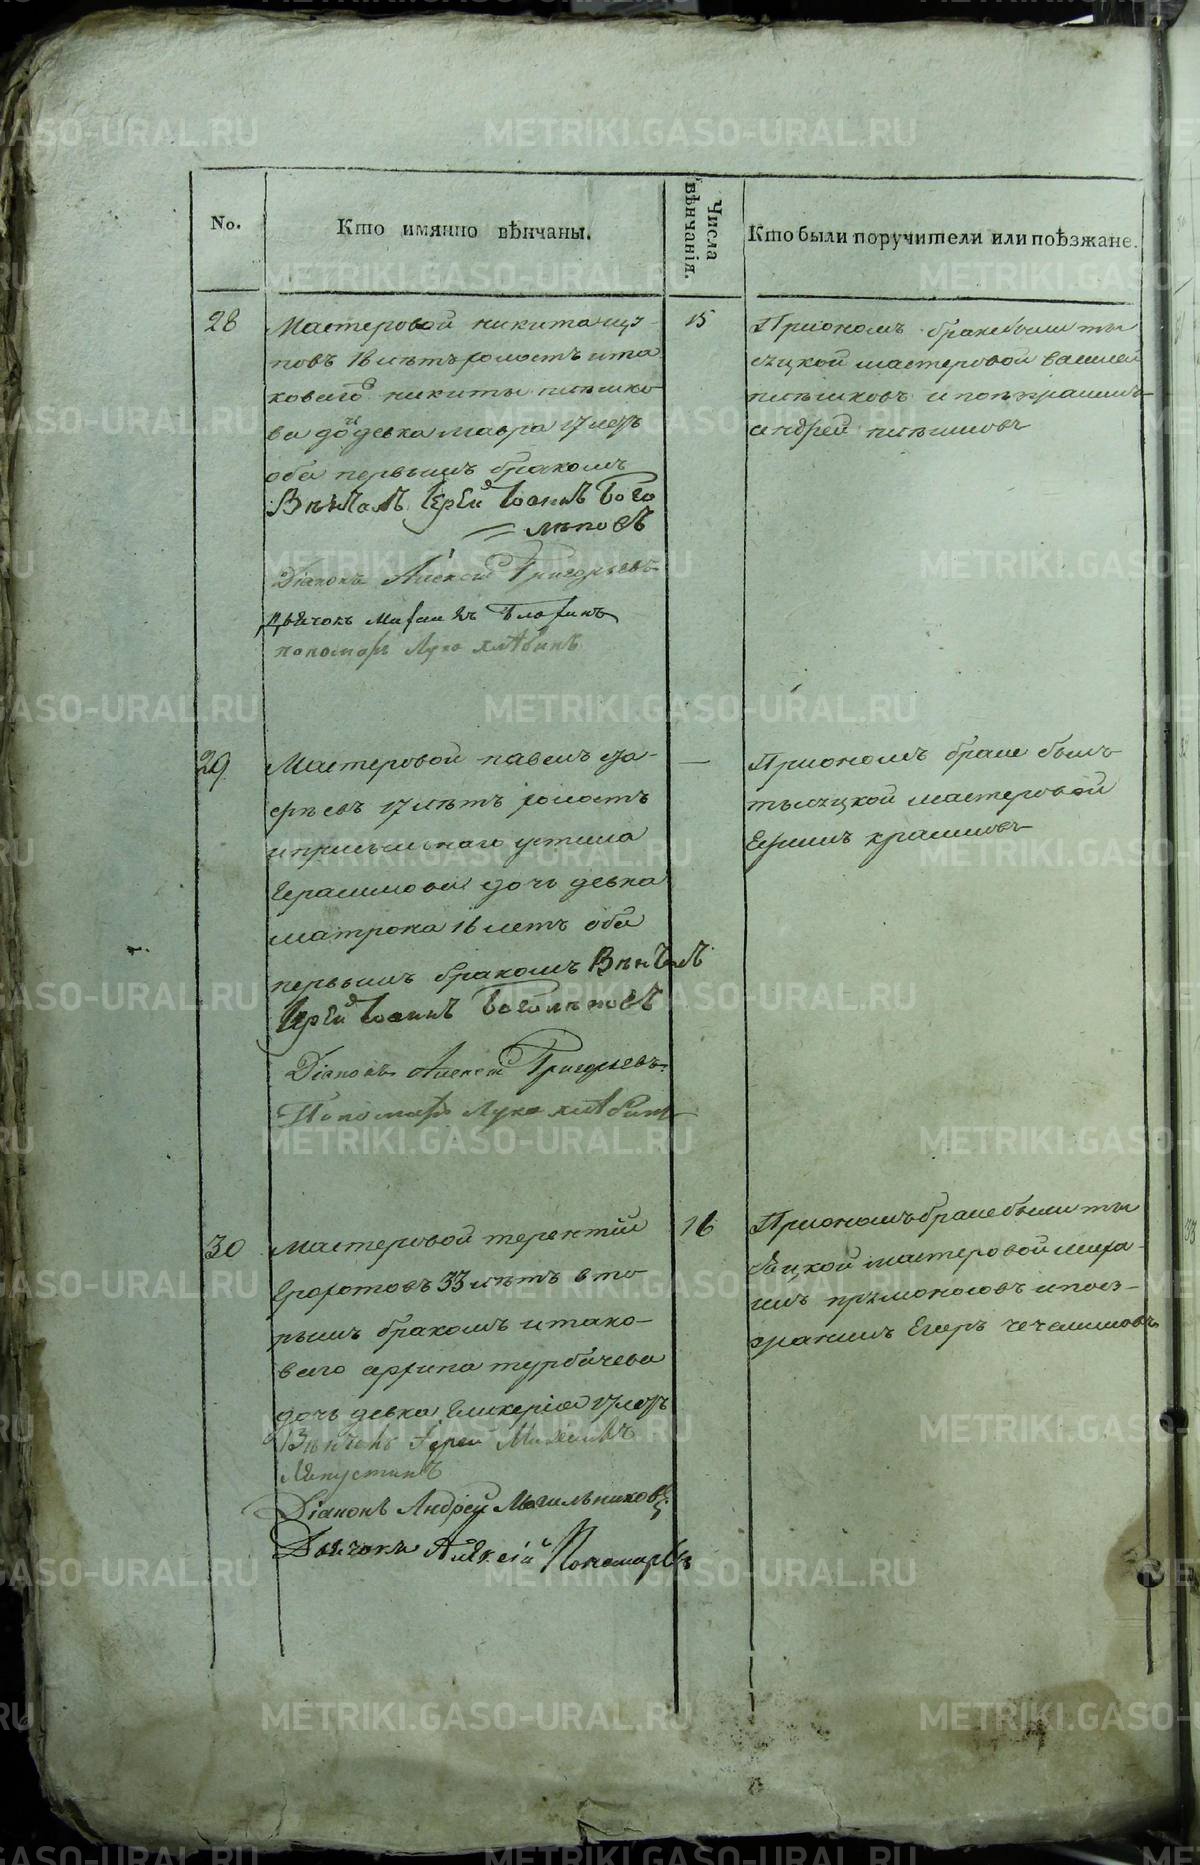 No.
Кто имянно вѣнчаны.
Числа вѣнчанія.
Кто были поручители или поѣзжане.
28
Мастеровой никита
повъ 18 лѣтъ холостъ ита
коваго никиты пѣшко
ва дочь девка мавра 17 летъ
оба первымъ бракомъ
Вѣнчалъ Іерей Іоаннъ Бого
лѣповъ
Діаконъ Алексей Григорьевъ
Дьячокъ Михаилъ
пономарь Лука хлѣбинъ
15
Приономъ браке были ты
сяцкой мастеровой василей
пѣшковъ и поезжанинъ
андрей пѣшковъ
29
Мастеровой павелъ
17 лѣтъ холостъ
устина
Герасимова дочь девка
матрона 16 летъ оба
первымъ бракомъ Вѣнчалъ
Іерей Іоаннъ Боголѣповъ
Діаконъ Алексей Григорьевъ
Пономарь Лука хлѣбинъ
—
Приономъ браке былъ
тысяцкой мастеровой
Ефимъ
30
Мастеровой терентій
33 лѣтъ вто
рымъ бракомъ итако
ваго турбачева
дочь девка Гликерія 17 летъ
Вѣнчалъ Іерей Михаилъ
Ляпустинъ
Діаконъ Андрей Могильниковъ
Дьячокъ Алексій Пономаревъ
16
Приономъ браке были ты
сяцкой мастеровой миха
илъ прямоносовъ ипоез
жанинъ Егоръ
METRIKI.GASO-URAL.RU